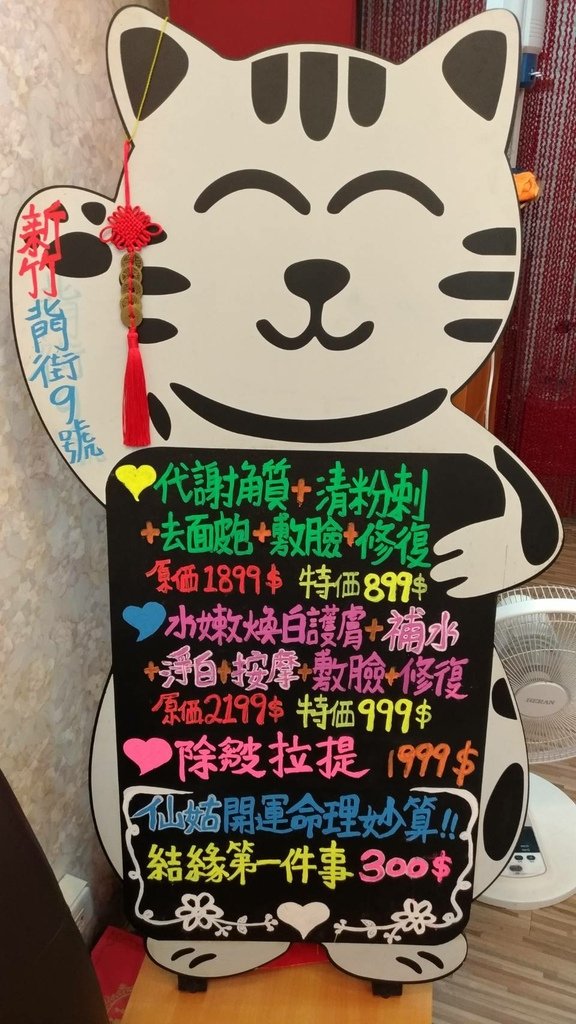 新竹
背門街9號
代謝角質+清粉刺
+去面皰+敷臉+修復
原価1899$ 特価899$
水嫩煥白護膚+補水
+淨白+按摩+敷臉+修復
原価2199$ 特価999$
除皺拉提 1999$
仙姑開運命理妙算!!
結緣第一件事300$
HERAN